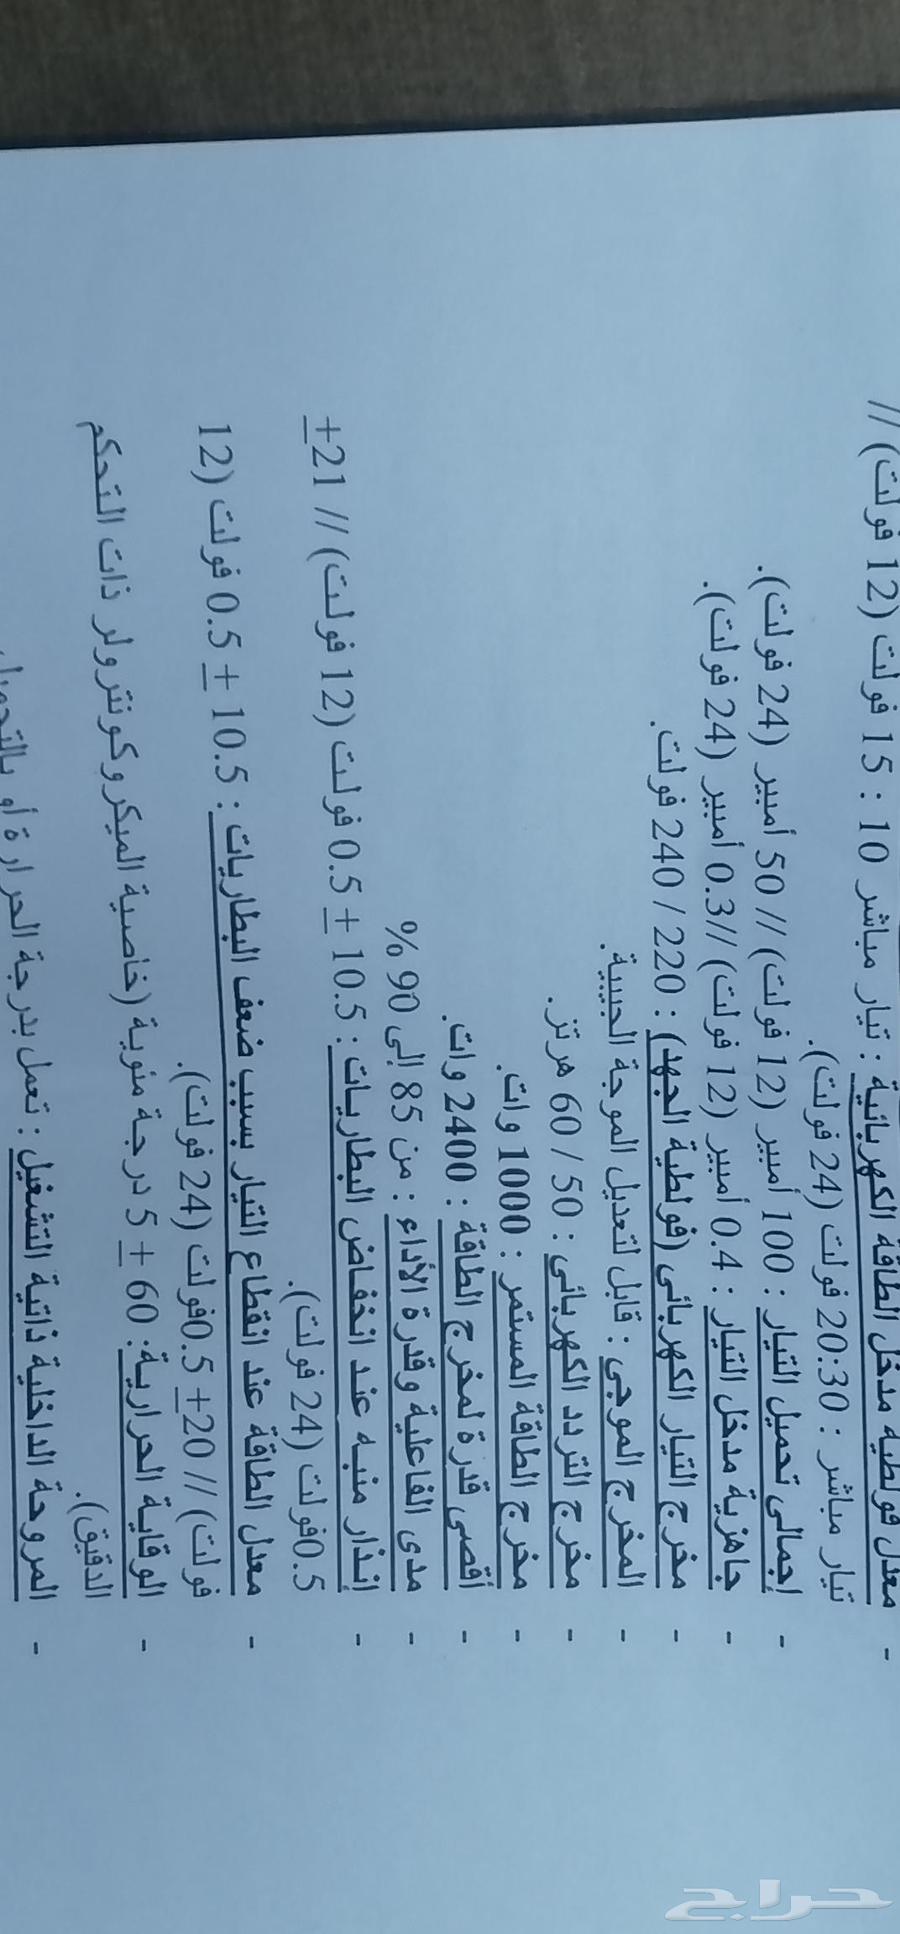 - معدل فولطية مدخل الطاقة الكهربائية : تيار مباشر 10 : 15 فولت (12 فولت) //
تيار مباشر : 20:30 فولت (24 فولت).
- إجمالي تحميل التيار : 100 أمبير (12 فولت) // 50 أمبير (24 فولت).
- جاهزية مدخل التيار : 0.4 أمبير (12 فولت) //0.3 أمبير (24 فولت).
- مخرج التيار الكهربائي (فولطية الجهد) : 220 / 240 فولت.
- المخرج الموجي : قابل لتعديل الموجة الجيبية.
- مخرج التردد الكهربائي : 50 / 60 هرتز.
- مخرج الطاقة المستمر : 1000 وات.
- أقصى قدرة لمخرج الطاقة : 2400 وات.
- مدى الفاعلية وقدرة الأداء : من 85 إلى 90 %
- إنذار منبه عند انخفاض البطاريات : 10.5 ± 0.5 فولت (12 فولت) // 21±
0.5فولت (24 فولت).
- معدل الطاقة عند انقطاع التيار بسبب ضعف البطاريات : 10.5 ± 0.5 فولت (12
فولت) // 20± 0.5فولت (24 فولت).
- الوقاية الحرارية : 60 ± 5 درجة مئوية (خاصية الميكروكونترولر ذات التحكم
الدقيق).
- المروحة الداخلية ذاتية التشغيل : تعمل بدرجة الحرارة أو بالتحميل
حراج